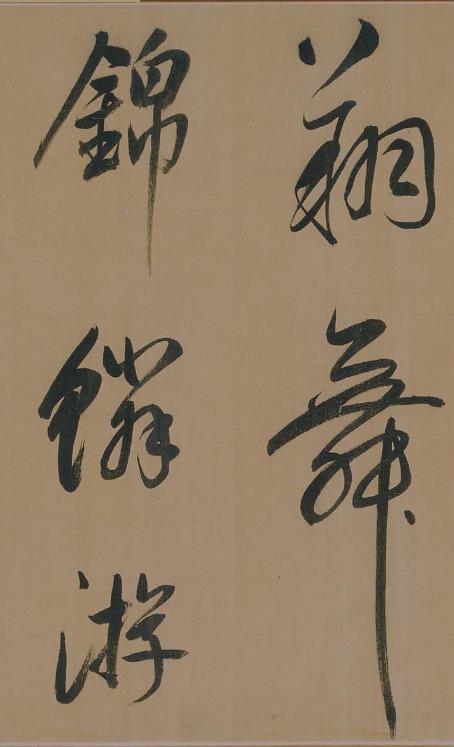 翔舞
錦鱗游